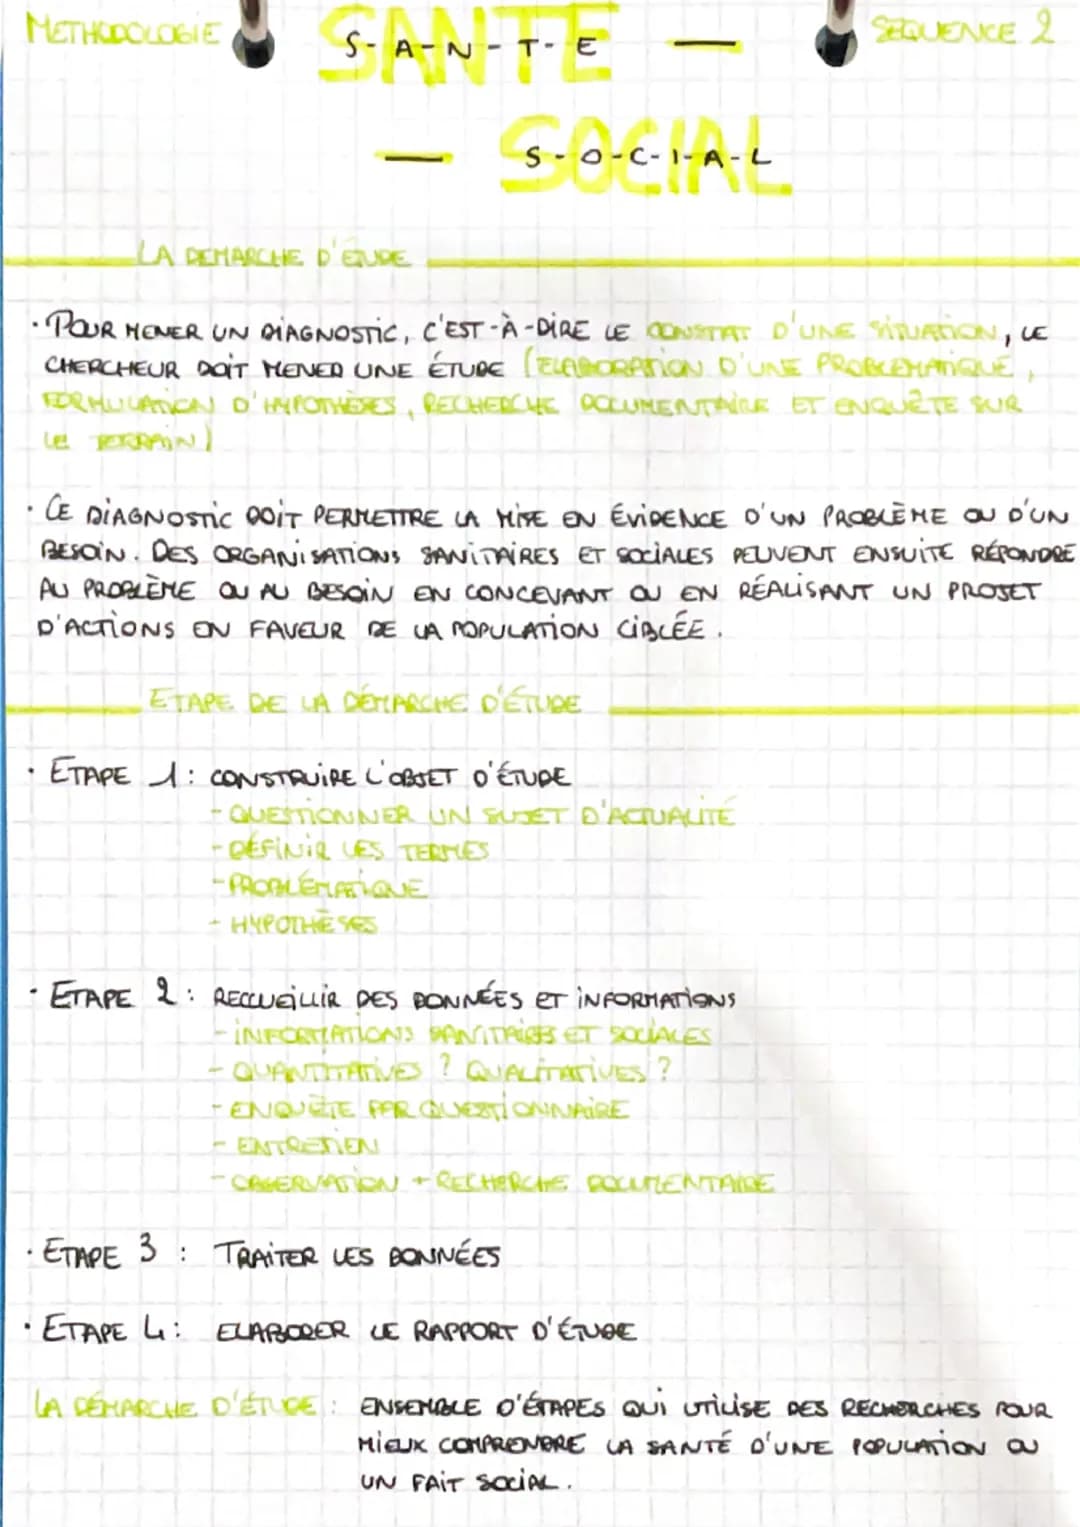 METHODOLOGIE
SANTE —
S-A-N-T-E
SEQUENCE 2
— SOCIAL
S-O-C-I-A-L
LA DEMARCHE D'ÉTUDE
· POUR MENER UN DIAGNOSTIC, C'EST-À-DIRE LE CONSTAT D'UNE SITUATION, LE
CHERCHEUR DOIT MENER UNE ÉTUDE (ELABORATION D'UNE PROBLEMATIQUE,
FORMULATION D'HYPOTHÈSES, RECHERCHE DOCUMENTAIRE ET ENQUÊTE SUR
LE TERRAIN)
· CE DIAGNOSTIC DOIT PERMETTRE LA MISE EN ÉVIDENCE D'UN PROBLÈME OU D'UN
BESOIN. DES ORGANISATIONS SANITAIRES ET SOCIALES PEUVENT ENSUITE RÉPONDRE
AU PROBLÈME OU AU BESOIN EN CONCEVANT OU EN RÉALISANT UN PROJET
D'ACTIONS EN FAVEUR DE LA POPULATION CIBLÉE.
ETAPE DE LA DÉMARCHE D'ÉTUDE
· ETAPE 1: CONSTRUIRE L'OBJET D'ÉTUDE
- QUESTIONNER UN SUJET D'ACTUALITÉ
- DÉFINIR LES TERMES
- PROBLÉMATIQUE
- HYPOTHÈSES
· ETAPE 2: RECCUEILLIR DES DONNÉES ET INFORMATIONS
- INFORMATIONS SANITAIRES ET SOCIALES
- QUANTITATIVES ? QUALITATIVES ?
- ENQUÊTE PAR QUESTIONNAIRE
- ENTRETIEN
- OBSERVATION + RECHERCHE DOCUMENTAIRE
· ETAPE 3 : TRAITER LES DONNÉES
· ETAPE 4: ELABORER LE RAPPORT D'ÉTUDE
LA DÉMARCHE D'ÉTUDE : ENSEMBLE D'ÉTAPES QUI UTILISE DES RECHERCHES POUR
MIEUX COMPRENDRE LA SANTÉ D'UNE POPULATION OU
UN FAIT SOCIAL.